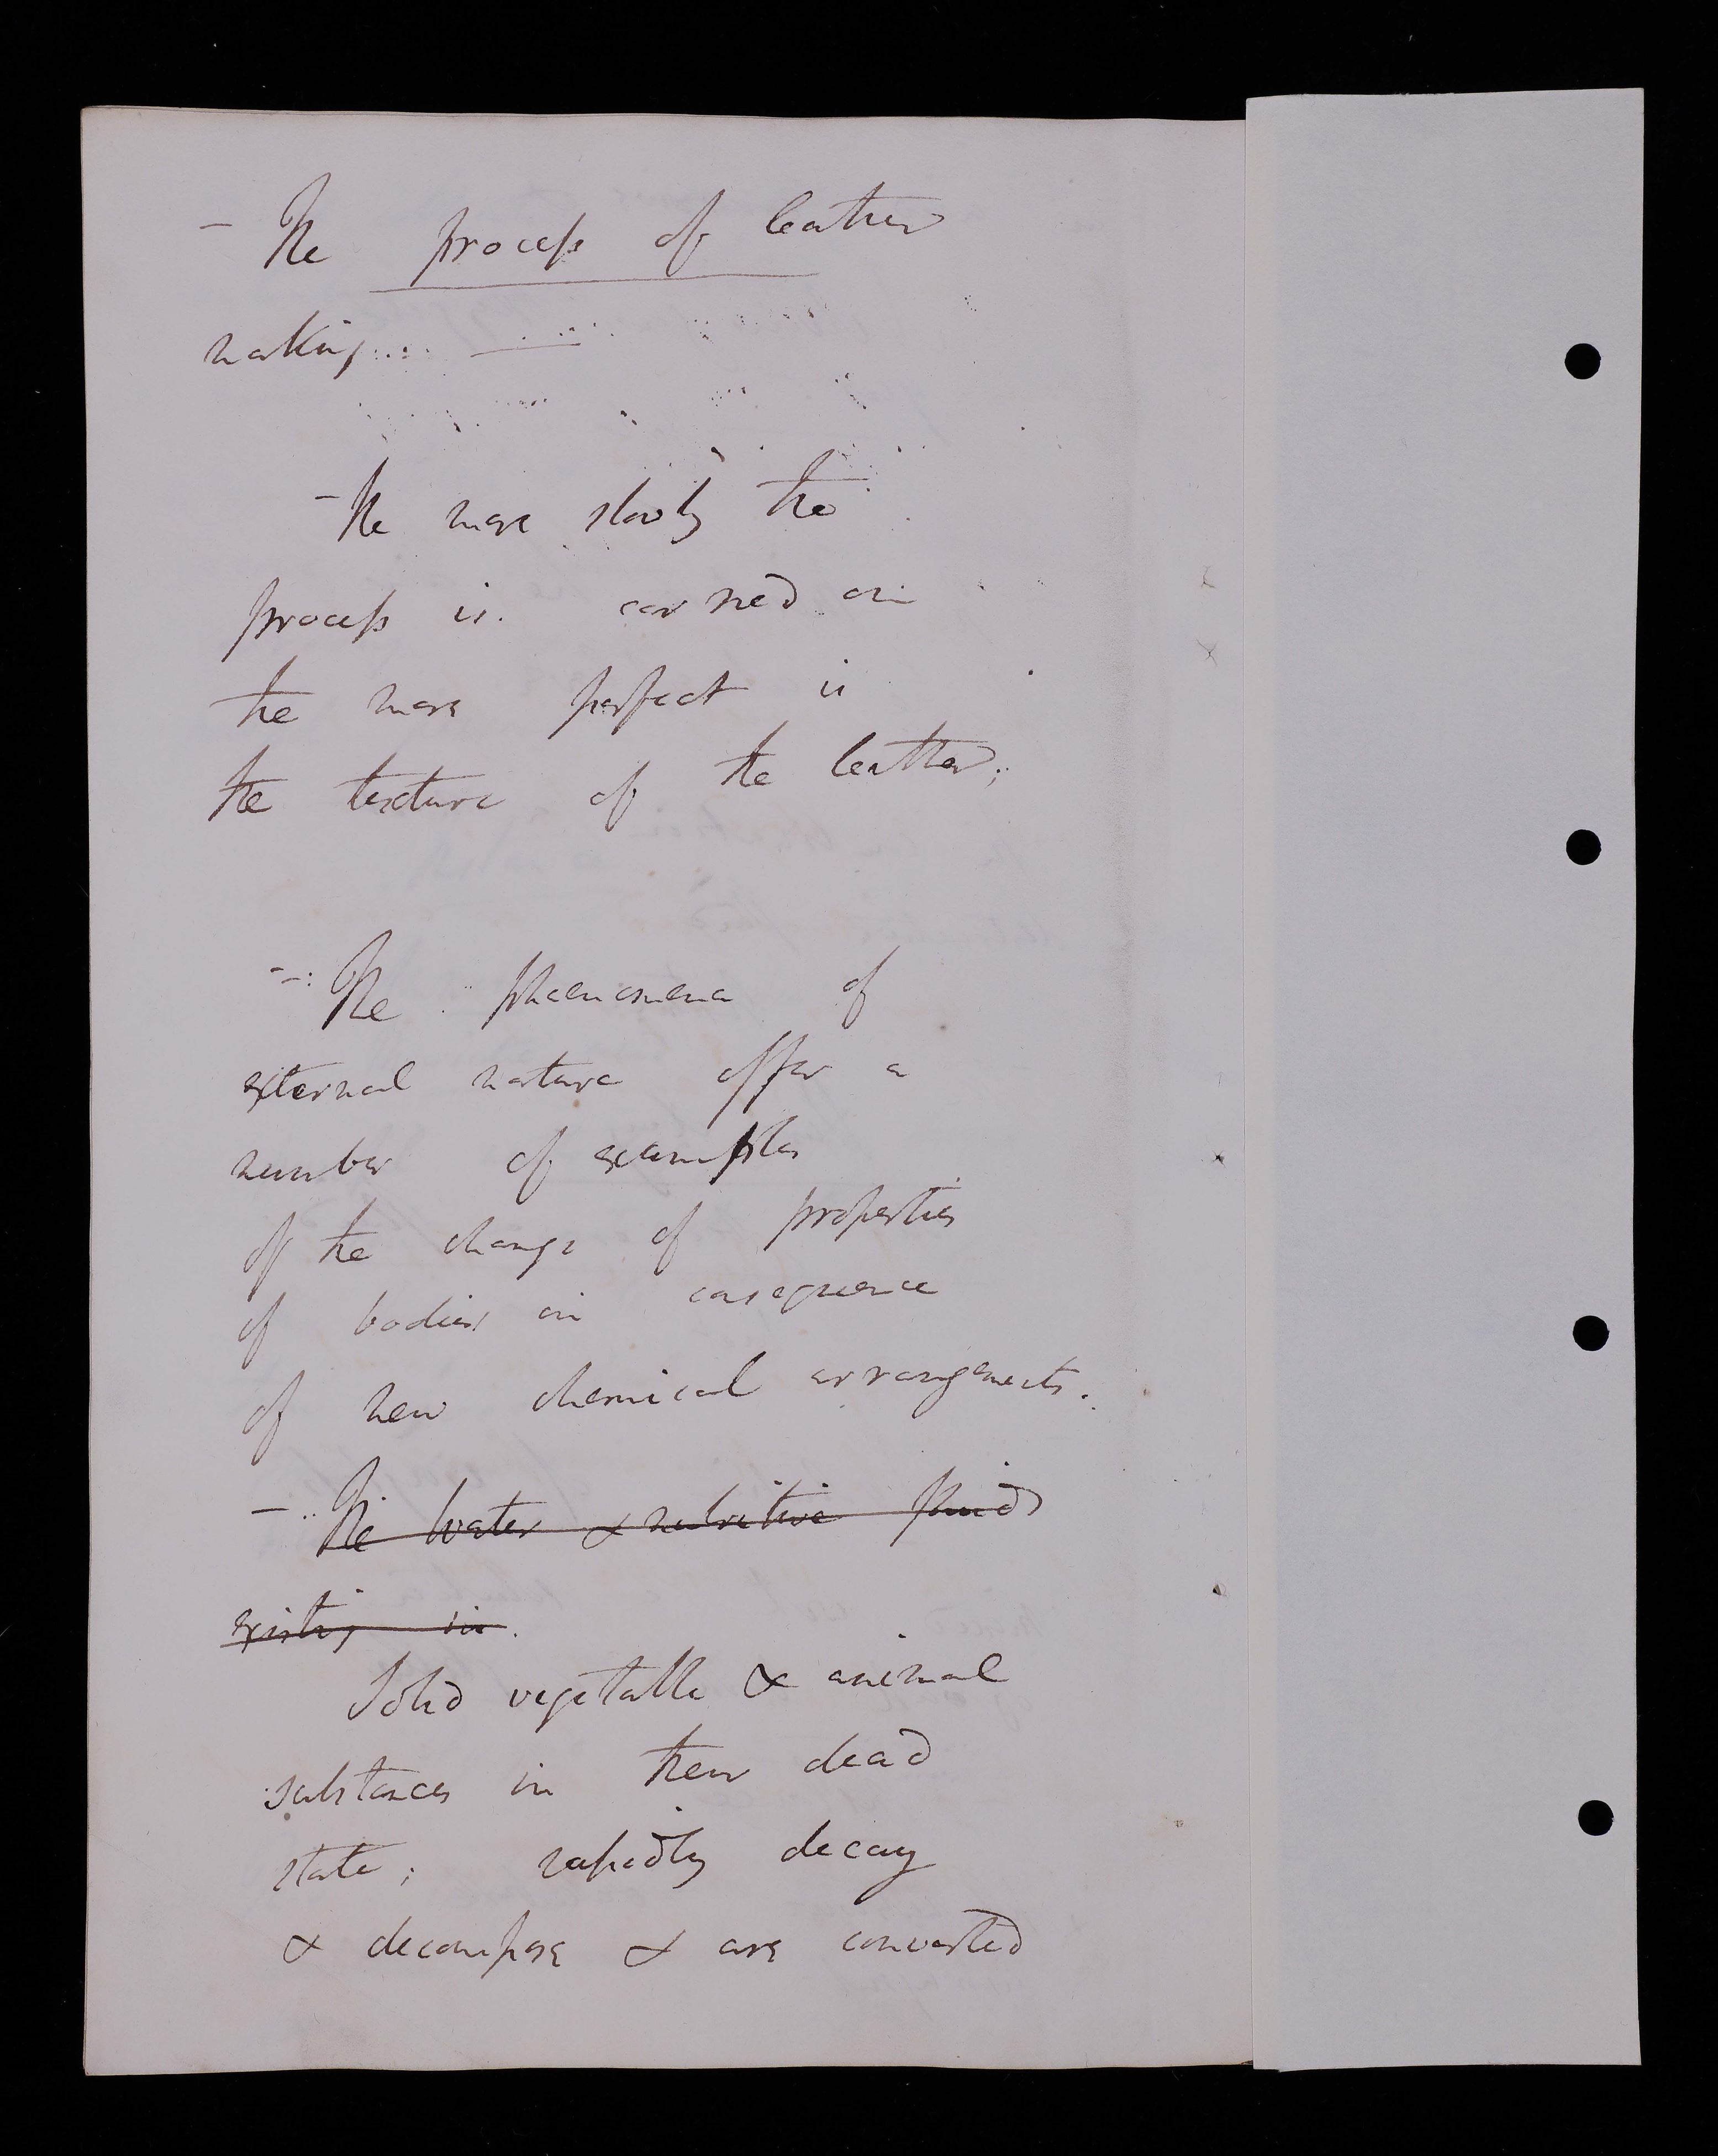 – The process of leather
making... —
– The more slowly the
process is carried on
the more perfect is
the texture of the leather;
– The phaenomena of
external nature offer a
number of examples
of the change of properties
of bodies in consequence
of new chemical arrangements.
– The water & nutritive fluids
existing in.
Solid vegetable & animal
substances in their dead
state; rapidly decay
& decompose & are converted